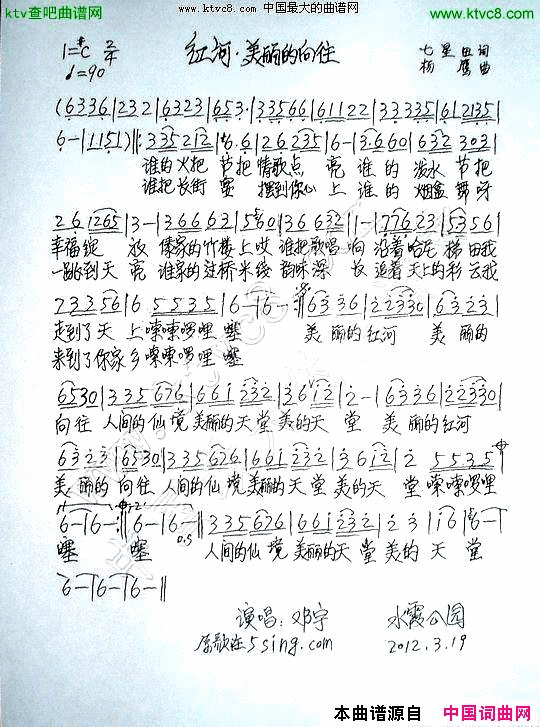 ktv查吧曲谱网 www.ktvc8.com 中国最大的曲谱网 www.ktvc8.com
1=#C 2/4
♩=90
红河·美丽的向往
七星 词
杨鹰 曲
(6336|232|6323|653·|33566|61122|33335|612351|
6-|1151)‖:335212|6·6|26235|6-|3·6660|632 303|
谁的火把 节把情歌点 亮谁的 泼水 节把
谁把长街 宴 摆到你心 上 谁的 烟盒 舞牙
261265|3-|366663|5660|36632|1-|177623|53356|
幸福绽 放 傣家的竹楼上哎 谁把歌唱响 沿着哈尼 梯田我
一跳到天 亮 谁家的过桥米线 韵味深 长 追着天上的彩 云我
723356|6 5535|6-|6-:‖6336|22330|6323|
走到了天 上嗦嗦啰哩 塞 美 丽的红河 美 丽的
来到了你家 乡嗦嗦啰哩 塞
6530|335676|661232|3612|2-|6336|22330|
向往 人间的仙 境美丽的天 堂美的天 堂 美 丽的红河
6323|6530|335676|661232|3612|2 5535|
美 丽的 向往 人间的仙 境美丽的天 堂美的天 堂嗦嗦啰哩
6-|6-:‖6-|6-‖335676|661232|23|16|6-|
塞 塞 人间的仙 境 美丽的天 堂 美的 天 堂
6-|6-|6-‖
演唱:邓宇 水霞公园
原歌在5sing.com 2012.3.19
本曲谱源自 中国词曲网